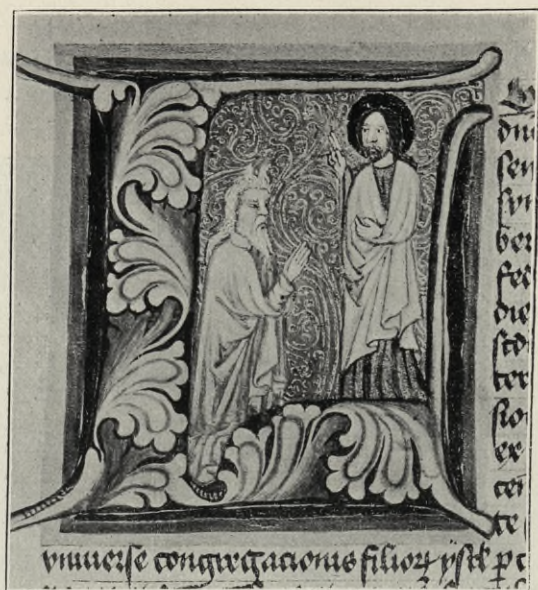 sen
syn
ber
die
ter
sio
ex
cen
te
vniuerse congregacionis filioꝝ ysrl p c